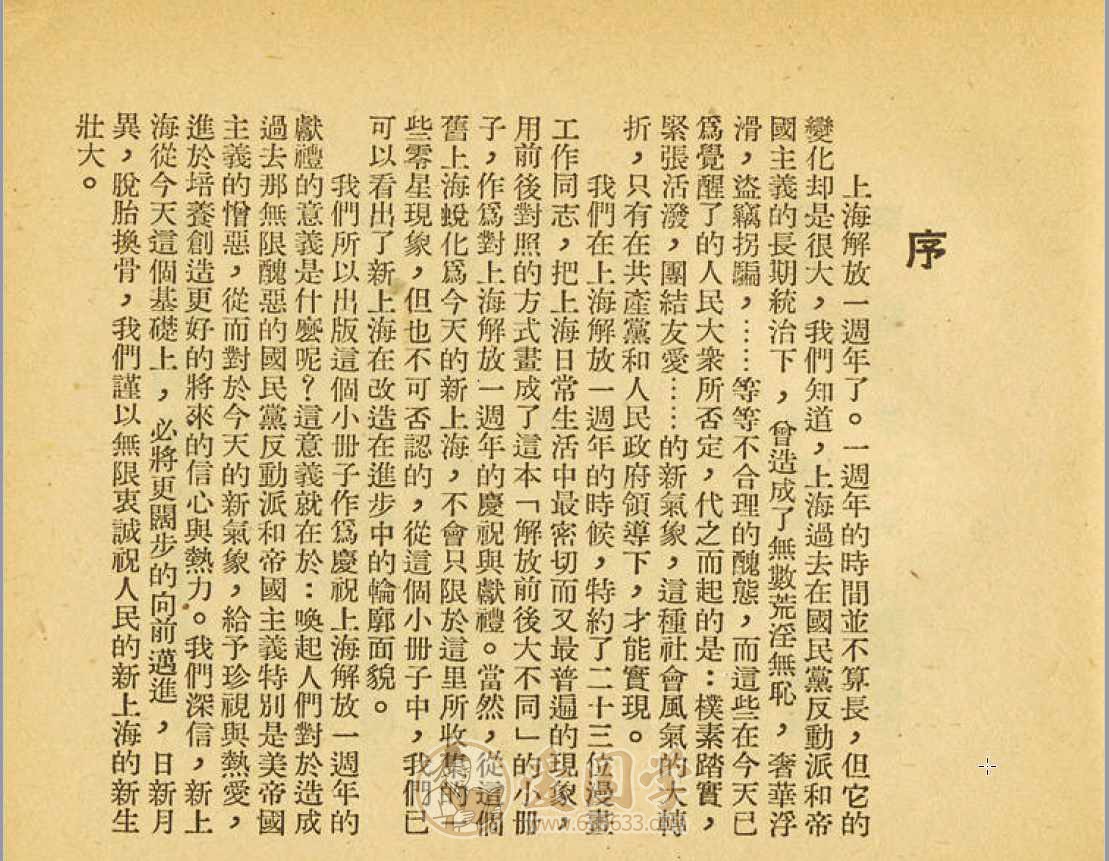 序
上海解放一週年了。一週年的時間並不算長，但它的
變化却是很大，我們知道，上海過去在國民黨反動派和帝
國主義的長期統治下，曾造成了無數荒淫無恥，奢華浮
滑，盜竊拐騙，……等等不合理的醜態，而這些在今天已
爲覺醒了的人民大衆所否定，代之而起的是：樸素踏實，
緊張活潑，團結友愛……的新氣象，這種社會風氣的大轉
折，只有在共產黨和人民政府領導下，才能實現。
我們在上海解放一週年的時候，特約了二十三位漫畫
工作同志，把上海日常生活中最密切而又最普遍的現象，
用前後對照的方式畫成了這本「解放前後大不同」的小冊
子，作爲對上海解放一週年的慶祝與獻禮。當然，從這個
舊上海蛻化爲今天的新上海，不會只限於這里所收集的一
些零星現象，但也不可否認的，從這個小冊子中，我們已
可以看出了新上海在改造在進步中的輪廓面貌。
我們所以出版這個小冊子作爲慶祝上海解放一週年的
獻禮的意義是什麼呢？這意義就在於：喚起人們對於造成
過去那無限醜惡的國民黨反動派和帝國主義特別是美帝國
主義的憎惡，從而對於今天的新氣象，給予珍視與熱愛，
進於培養創造更好的將來的信心與熱力。我們深信，新上
海從今天這個基礎上，必將更闊步的向前邁進，日新月
異，脫胎換骨，我們謹以無限衷誠祝人民的新上海的新生
壯大。